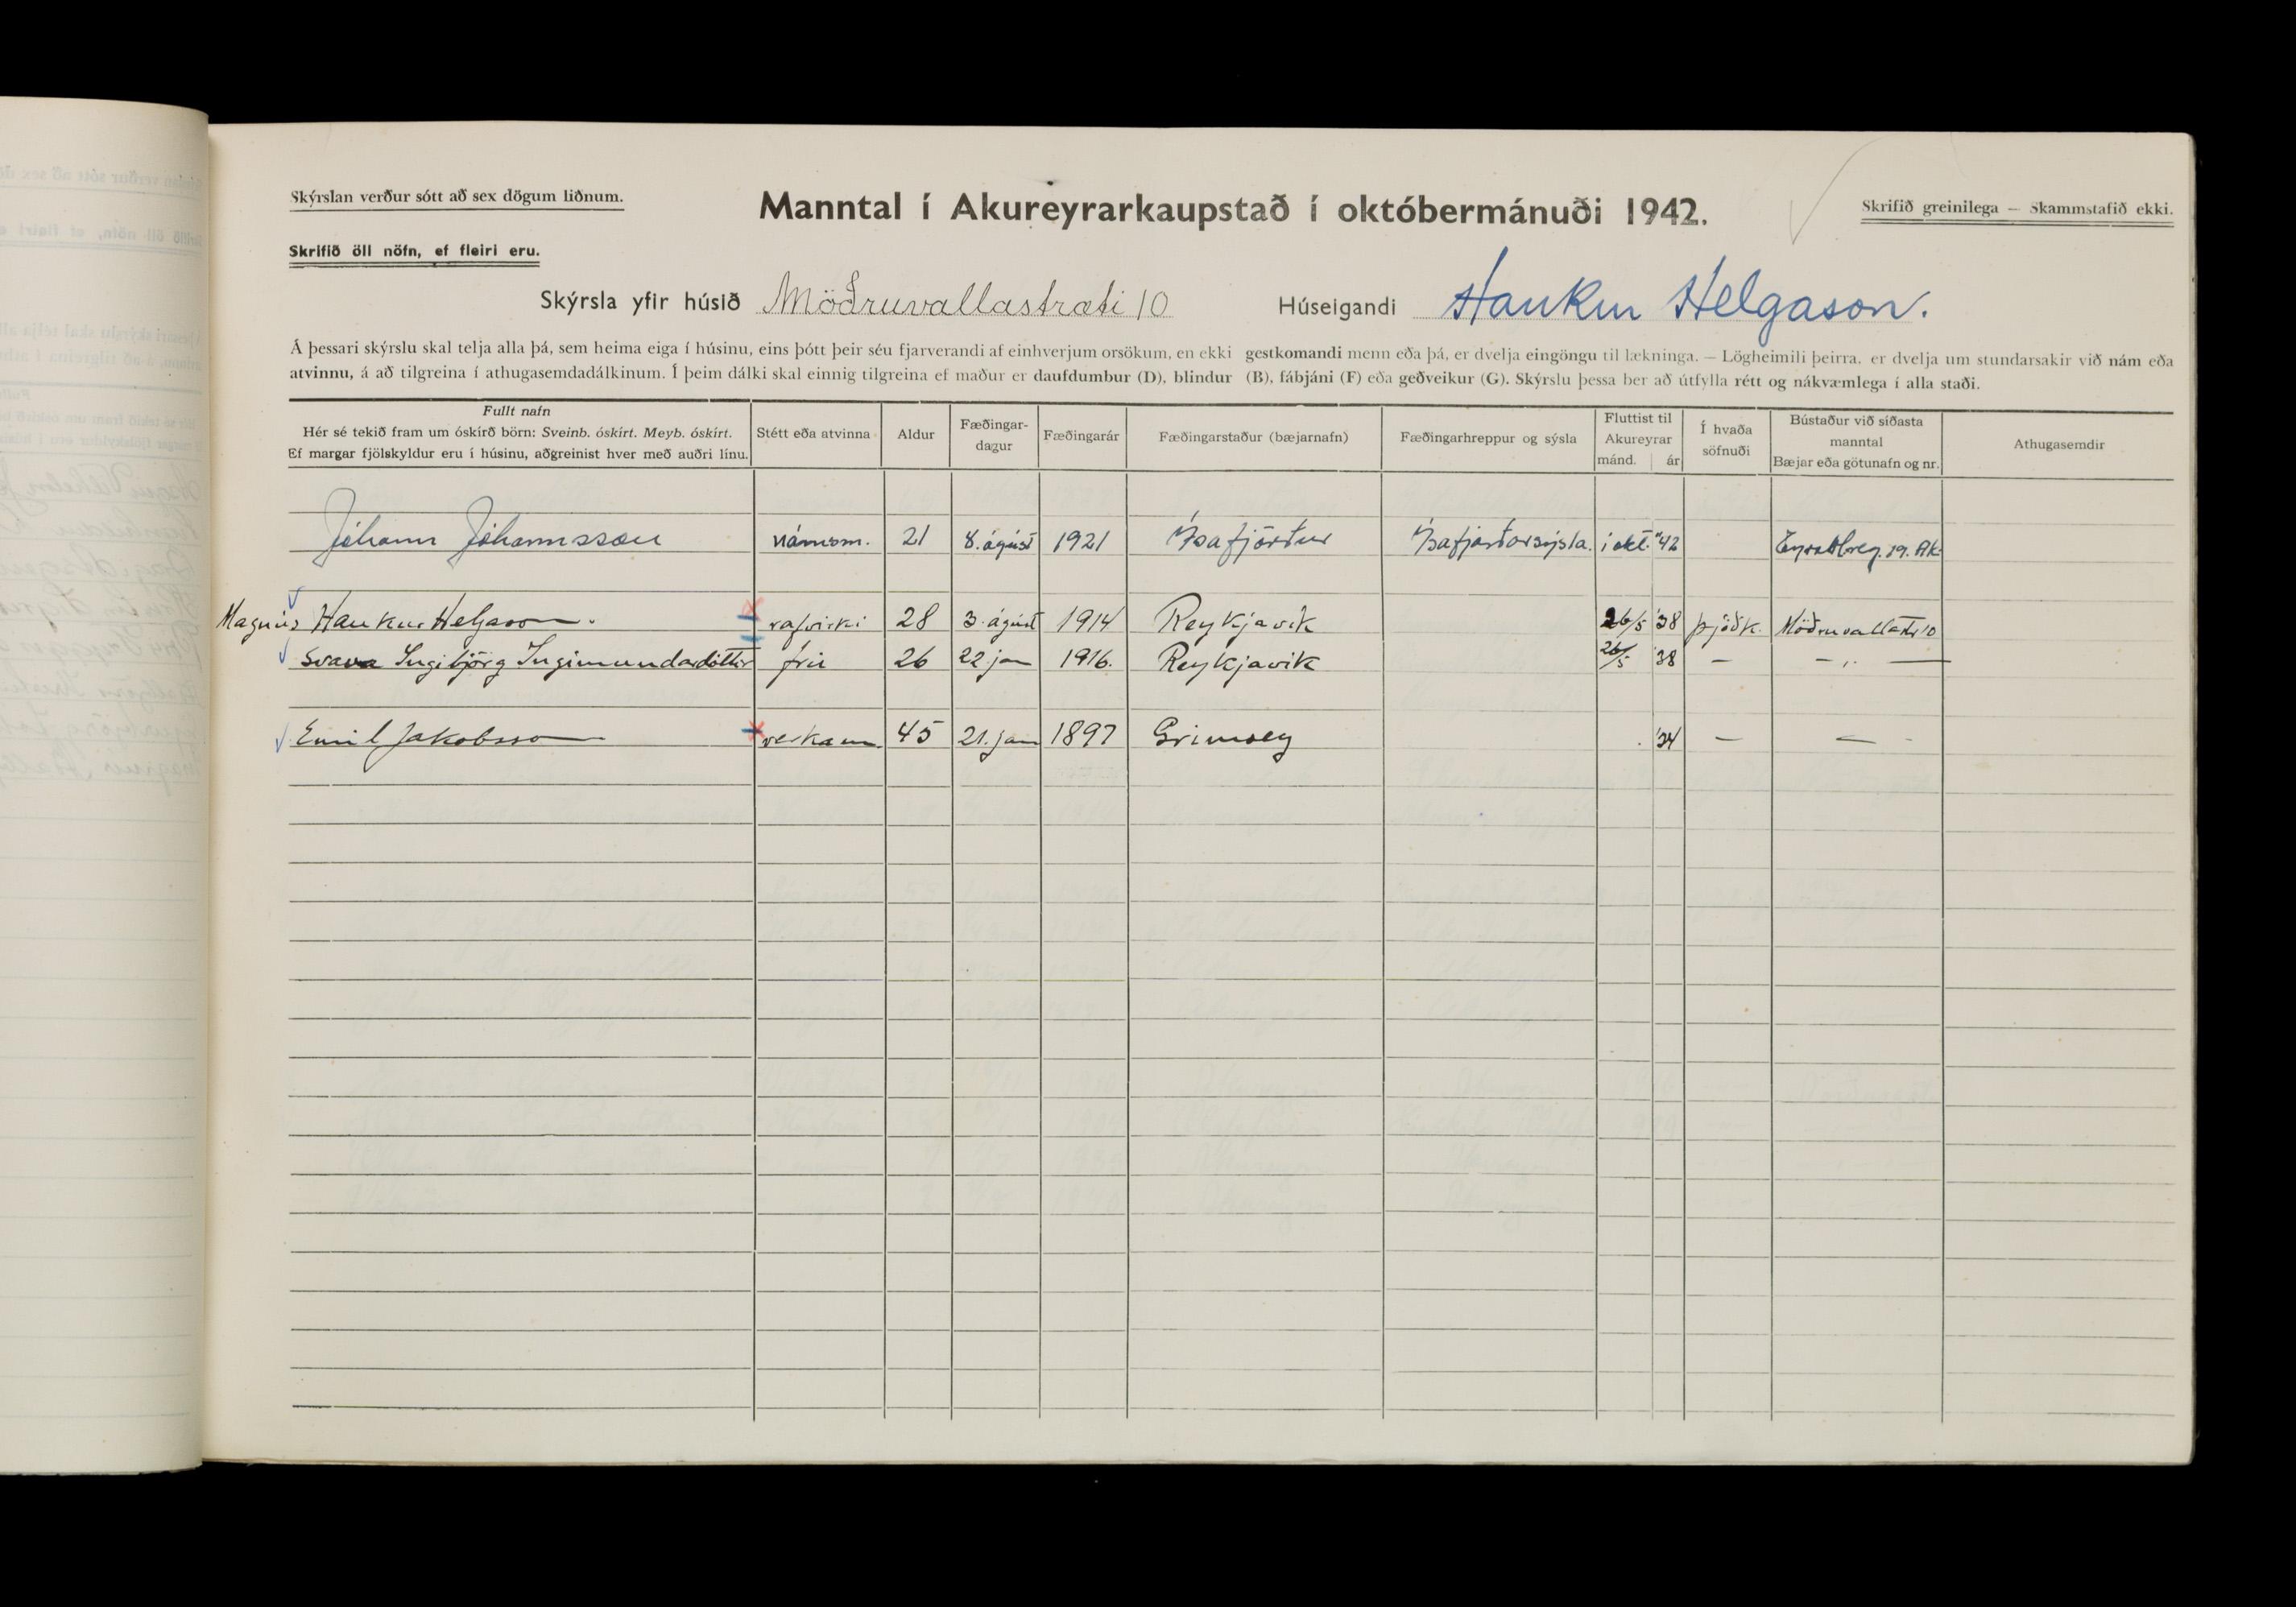 Skýrslan verður sótt að sex dögum liðnum.
Manntal í Akureyrarkaupstað í októbermánuði 1942.
Skrifið greinilega — Skammstafið ekki.
Skrifið öll nöfn, ef fleiri eru.
Skýrsla yfir húsið Möðruvallastræti 10 Húseigandi Haukur Helgason.
Á þessari skýrslu skal telja alla þá, sem heima eiga í húsinu, eins þótt þeir séu fjarverandi af einhverjum orsökum, en ekki gestkomandi menn eða þá, er dvelja eingöngu til lækninga. — Lögheimili þeirra, er dvelja um stundarsakir við nám eða
atvinnu, á að tilgreina í athugasemdadálkinum. Í þeim dálki skal einnig tilgreina ef maður er daufdumbur (D), blindur (B), fábjáni (F) eða geðveikur (G). Skýrslu þessa ber að útfylla rétt og nákvæmlega í alla staði.
Fullt nafn
Hér sé tekið fram um óskírð börn: Sveinb. óskírt. Meyb. óskírt.
Ef margar fjölskyldur eru í húsinu, aðgreinist hver með auðri línu.
Stétt eða atvinna
Aldur
Fæðingar-
dagur
Fæðingarár
Fæðingarstaður (bæjarnafn)
Fæðingarhreppur og sýsla
Fluttist til
Akureyrar
mánd. ár
Í hvaða
söfnuði
Bústaður við síðasta
manntal
Bæjar eða götunafn og nr.
Athugasemdir
Jóhann Jóhannsson námsm. 21 8. ágúst 1921 Ísafjörður Ísafjarðarsýsla. í okt. "42 19. Ak.
Magnús Haukur Helgason. rafvirki 28 3. ágúst 1914 Reykjavík 26/5 '38 þjóðk. Möðruvallastr 10
Svava Ingibjörg Ingimundardóttir frú 26 22 jan 1916. Reykjavík 26/5 '38 — — „ —
Emil Jakobsson verkam. 45 21. jan 1897 Grímsey '34 — —